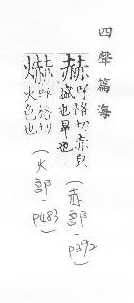 四聲篇海
赫呼格切赤皃
盛也旱也
(赤部
爀呼格切
火色也
(火部 P483)